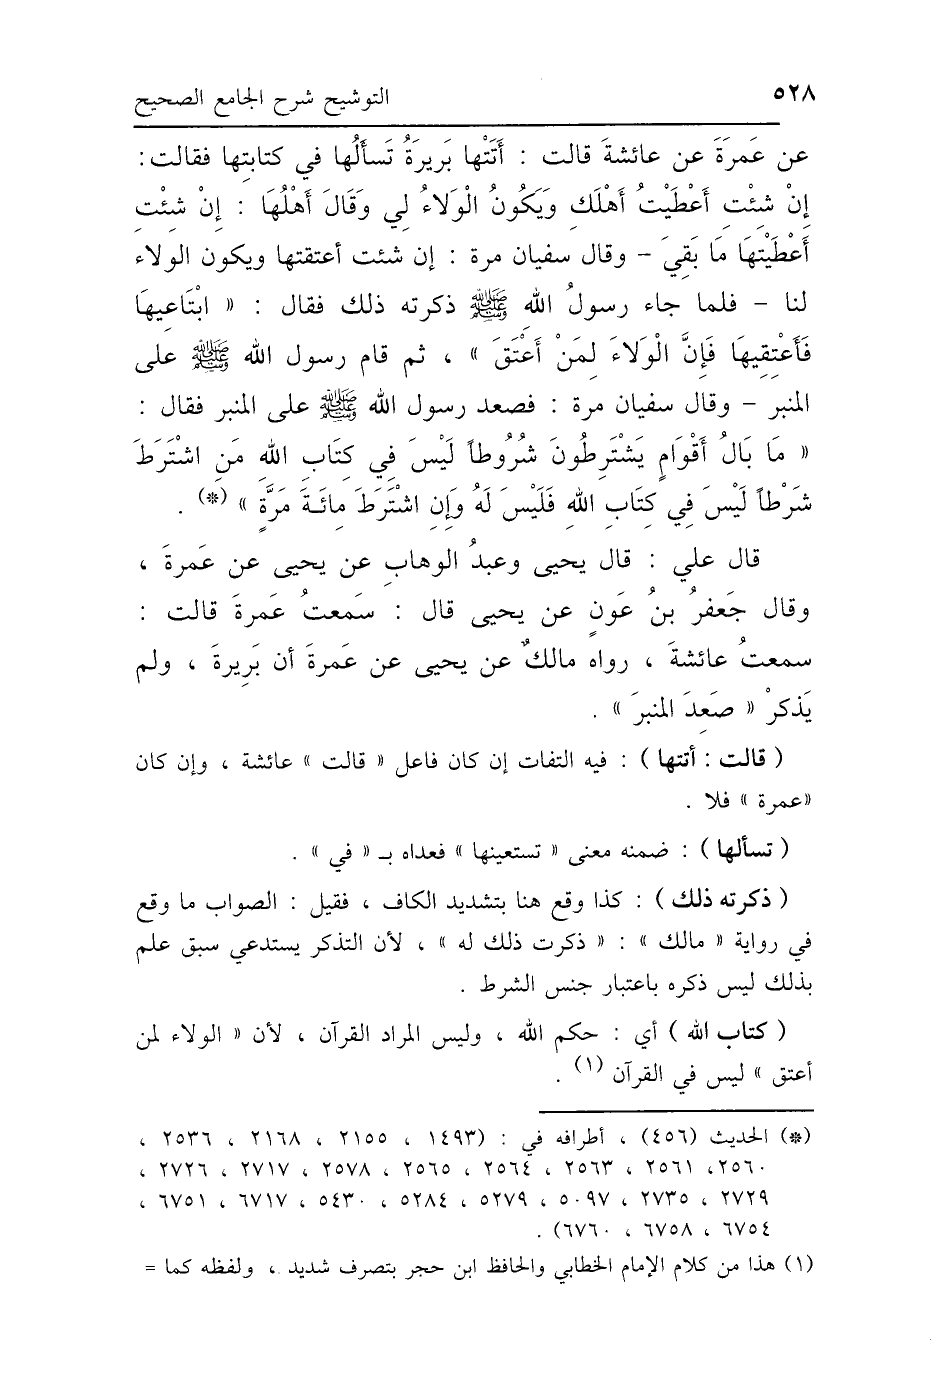 ٥٢٨ التوشيح شرح الجامع الصحيح
عن عَمرَةَ عن عائشةَ قالت : أَتَتْها بَرِيرَةُ تَسأَلُها في كتابتِها فقالت :
إِنْ شئْتِ أَعْطَيْتُ أَهْلَكِ وَيَكُونُ الْوَلَاءُ لِي وَقَالَ أَهْلُهَا : إِنْ شئْتِ
أَعْطَيْتِهَا مَا بَقِيَ – وقال سفيان مرة : إن شئت أعتقتها ويكون الولاء
لنا – فلما جاء رسولُ الله ﷺ ذكرته ذلك فقال : « ابْتَاعِيهَا
فَأَعْتِقِيهَا فَإِنَّ الْوَلَاءَ لِمَنْ أَعْتَقَ » ، ثم قام رسول الله ﷺ على
المنبر – وقال سفيان مرة : فصعد رسول الله ﷺ على المنبر فقال :
« مَا بَالُ أَقْوَامٍ يَشْتَرِطُونَ شُرُوطاً لَيْسَ فِي كِتَابِ اللهِ مَنِ اشْتَرَطَ
شَرْطاً لَيْسَ فِي كِتَابِ اللهِ فَلَيْسَ لَهُ وَإِنِ اشْتَرَطَ مِائَةَ مَرَّةٍ » (*) .
قال علي : قال يحيى وعبدُ الوهابِ عن يحيى عن عَمرةَ ،
وقال جَعفرُ بنُ عَونٍ عن يحيى قال : سَمعتُ عَمرةَ قالت :
سمعتُ عائشةَ ، رواه مالكٌ عن يحيى عن عَمرةَ أن بَرِيرةَ ، ولم
يَذكرْ « صَعِدَ المنبرَ » .
( قالت : أتتها ) : فيه التفات إن كان فاعل « قالت » عائشة ، وإن كان
«عمرة » فلا .
( تسألها ) : ضمنه معنى « تستعينها » فعداه بـ « في » .
( ذكرته ذلك ) : كذا وقع هنا بتشديد الكاف ، فقيل : الصواب ما وقع
في رواية « مالك » : « ذكرت ذلك له » ، لأن التذكر يستدعي سبق علم
بذلك ليس ذكره باعتبار جنس الشرط .
( كتاب الله ) أي : حكم الله ، وليس المراد القرآن ، لأن « الولاء لمن
أعتق » ليس في القرآن (١) .
(*) الحديث (٤٥٦) ، أطرافه في : (١٤٩٣ ، ٢١٥٥ ، ٢١٦٨ ، ٢٥٣٦ ،
٢٥٦٠، ٢٥٦١ ، ٢٥٦٣ ، ٢٥٦٤ ، ٢٥٦٥ ، ٢٥٧٨ ، ٢٧١٧ ، ٢٧٢٦ ،
٢٧٢٩ ، ٢٧٣٥ ، ٥٠٩٧ ، ٥٢٧٩ ، ٥٢٨٤ ، ٥٤٣٠ ، ٦٧١٧ ، ٦٧٥١ ،
٦٧٥٤ ، ٦٧٥٨ ، ٦٧٦٠) .
(١) هذا من كلام الإمام الخطابي والحافظ ابن حجر بتصرف شديد ، ولفظه كما =